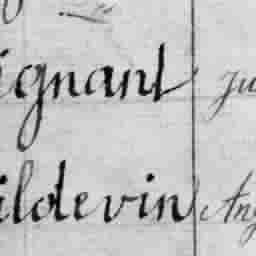 ignant Ju
ildevin Ang